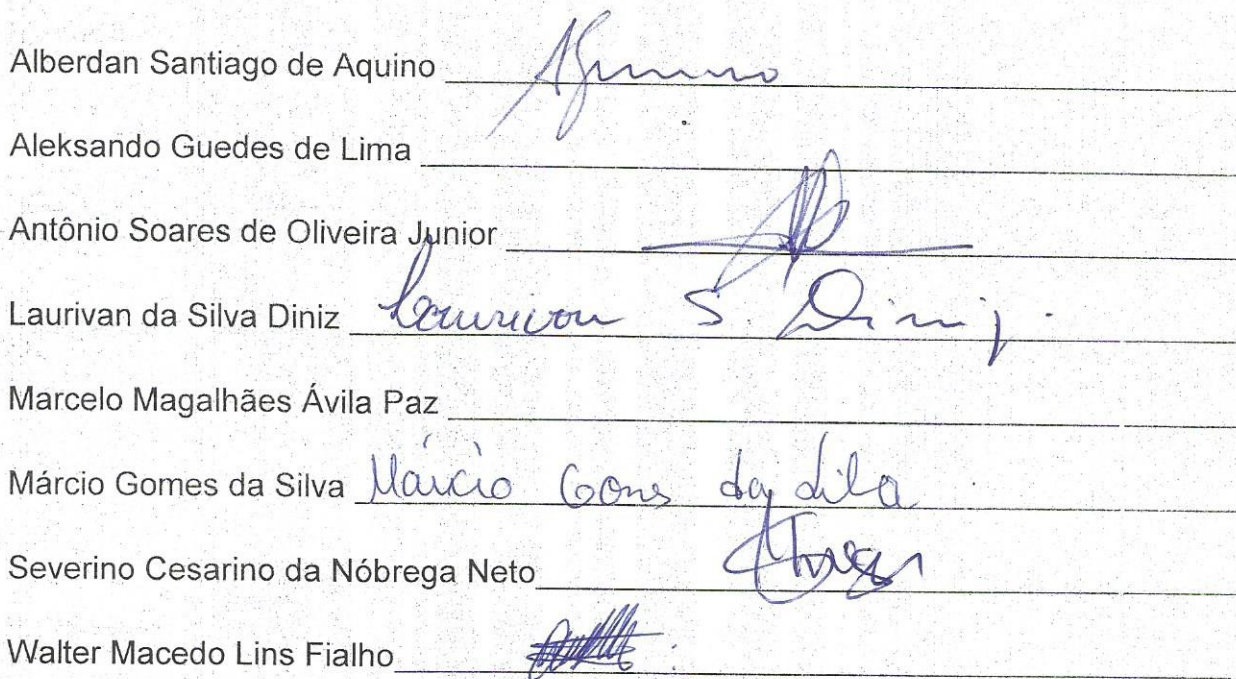 Alberdan Santiago de Aquino
Aleksando Guedes de Lima
Antônio Soares de Oliveira Junior
Laurivan da Silva Diniz Laurivan S. Diniz.
Marcelo Magalhães Ávila Paz
Márcio Gomes da Silva Márcio Goms da Silva
Severino Cesarino da Nóbrega Neto
Walter Macedo Lins Fialho